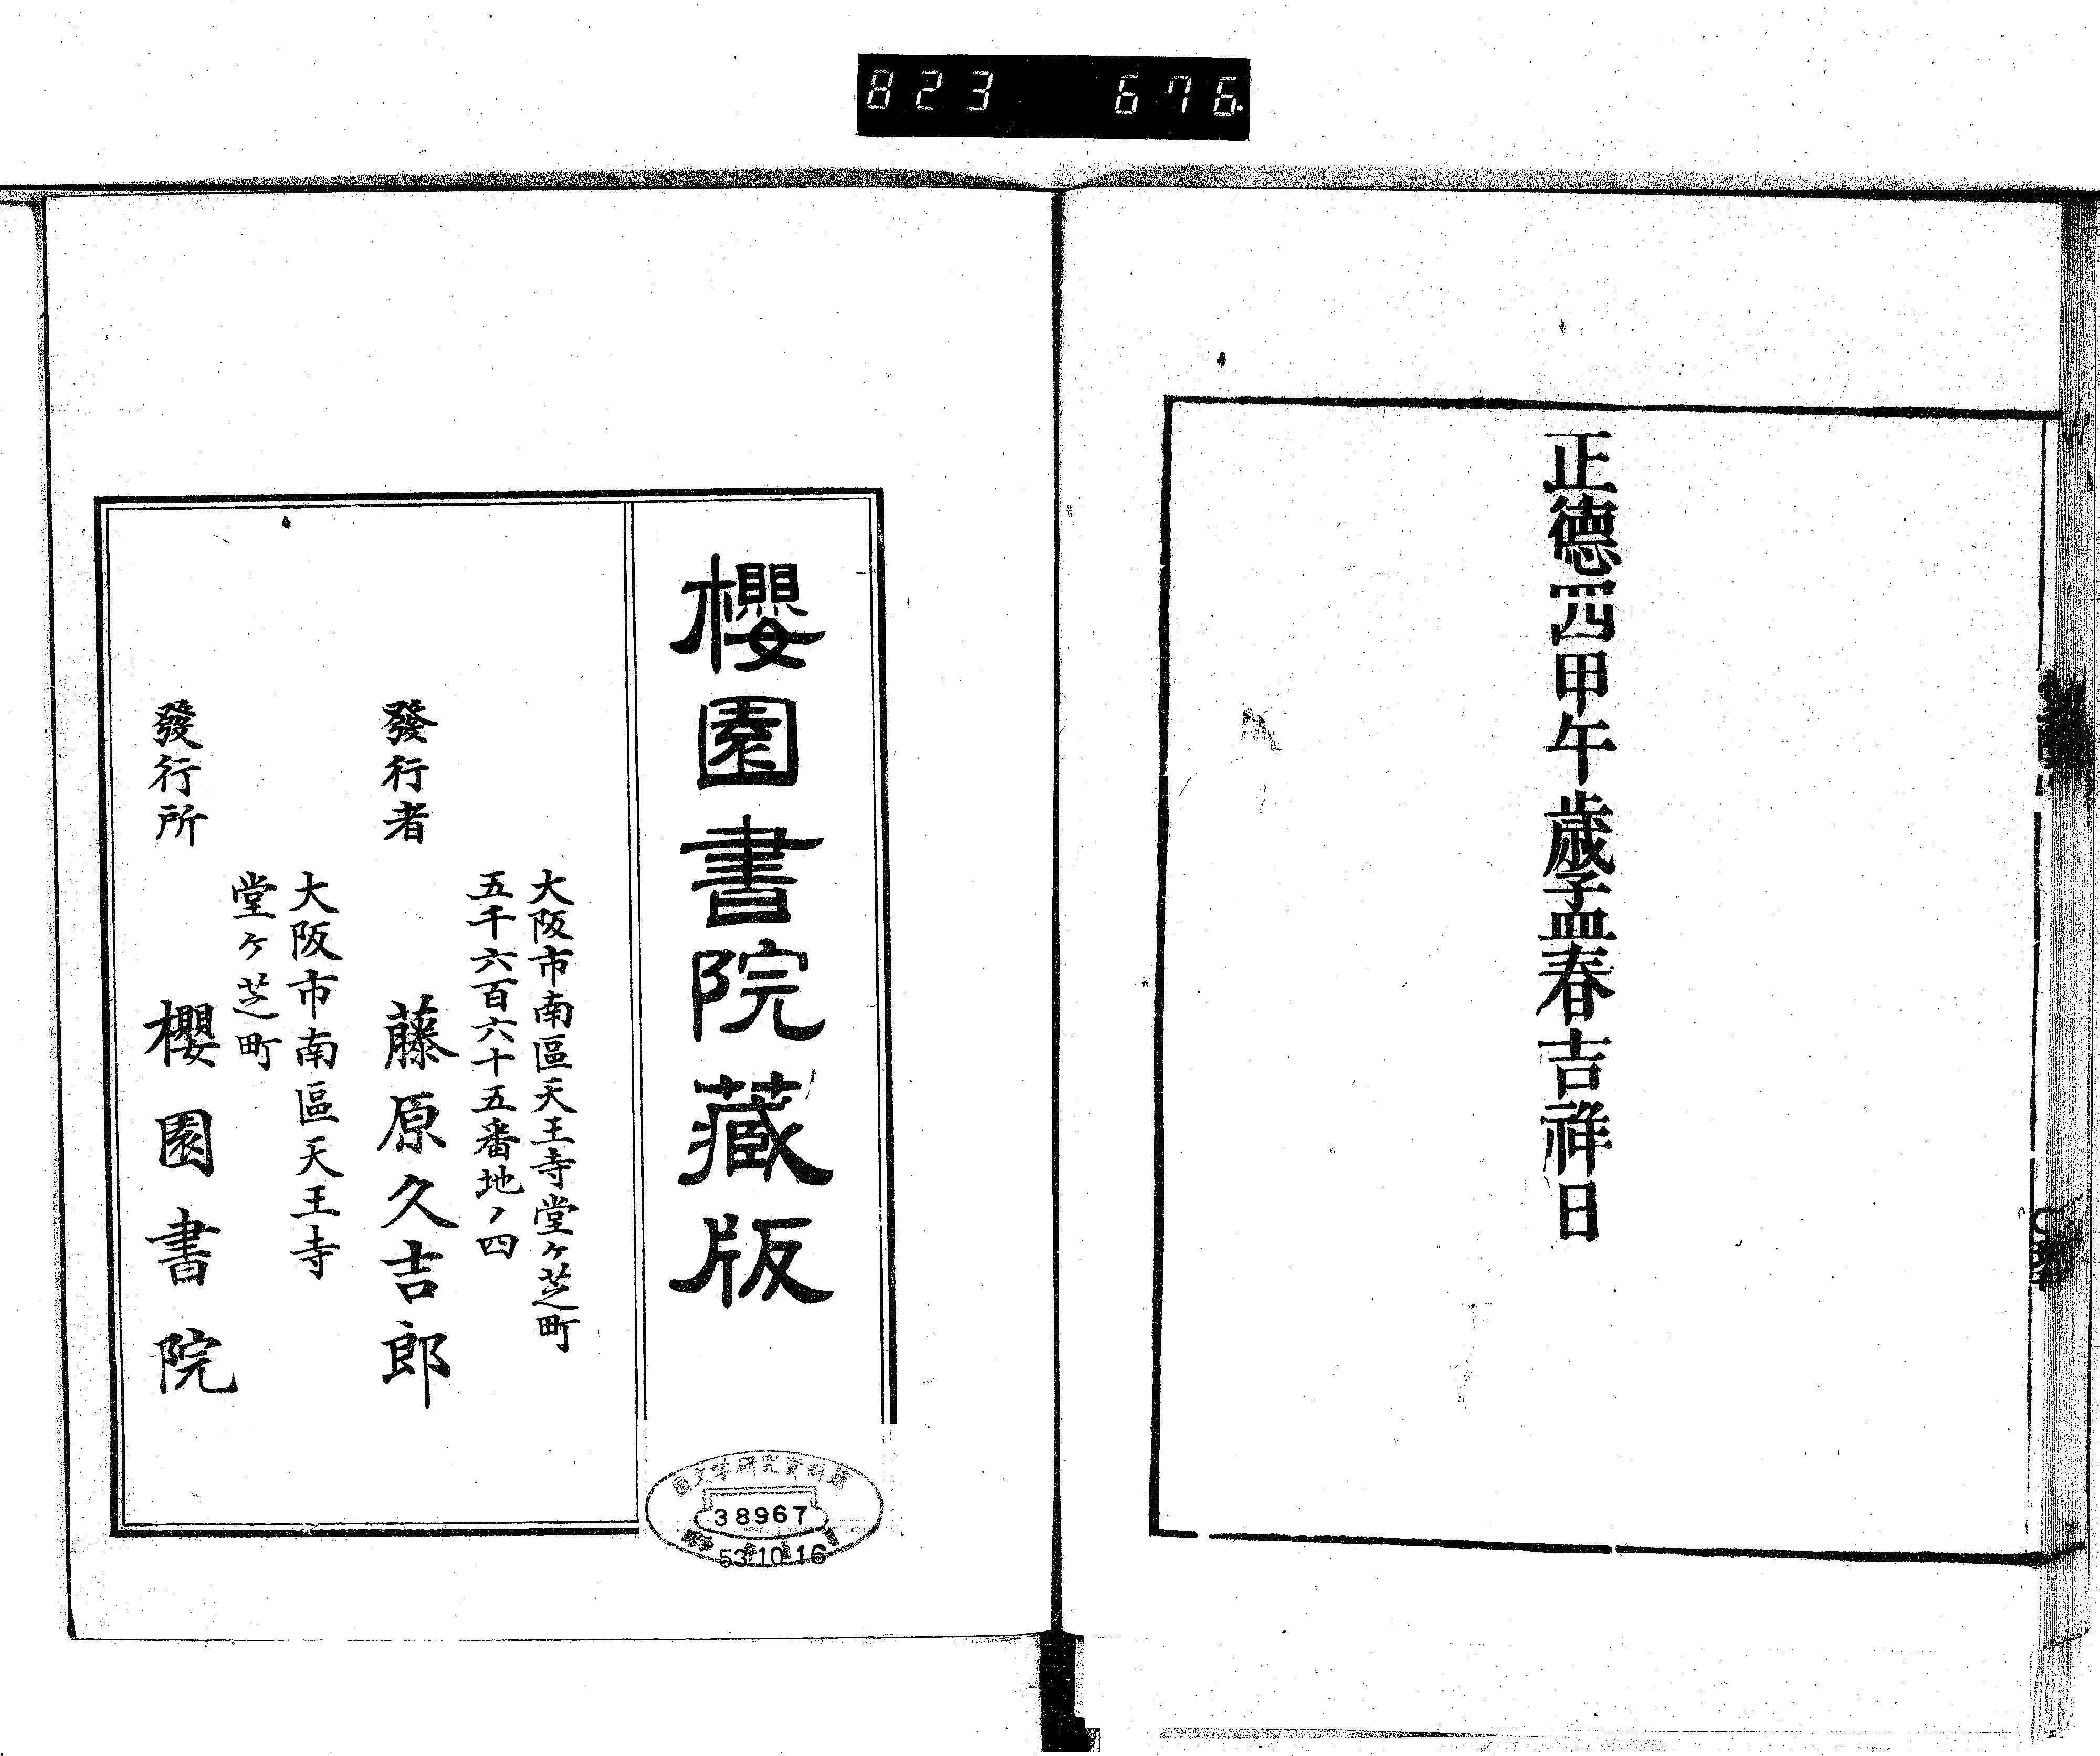 823 676
正德四甲午歲孟春吉祥日
櫻園書院藏版
大阪市南區天王寺堂ヶ芝町
五千六百六十五番地ノ四
發行者 藤原久吉郎
大阪市南區天王寺
堂ヶ芝町
發行所 櫻園書院
國文学研究資料館
38967
53.10.16